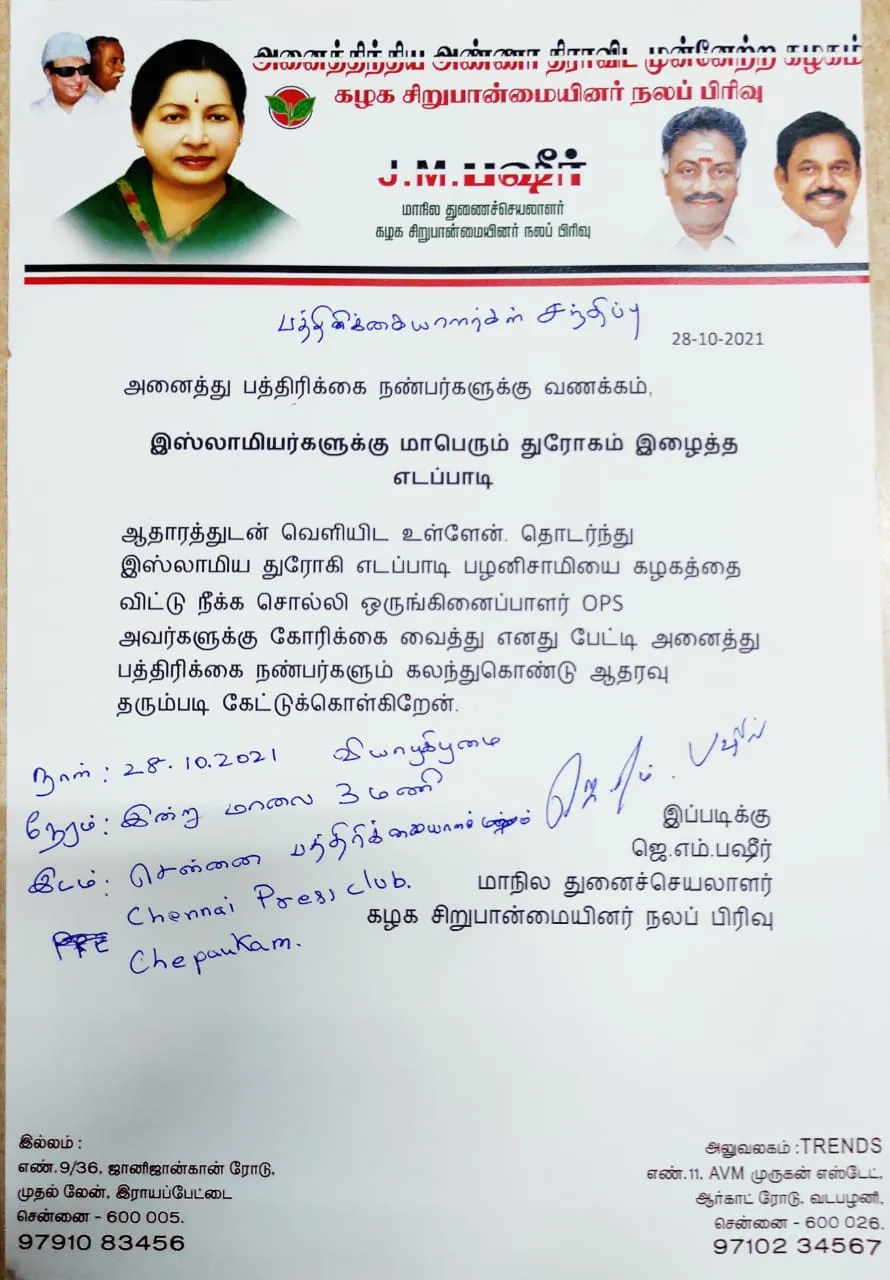 அனைத்திந்திய அண்ணா திராவிட முன்னேற்ற கழகம்
கழக சிறுபான்மையினர் நலப் பிரிவு
J.M.பஷீர்
மாநில துணைச்செயலாளர்
கழக சிறுபான்மையினர் நலப் பிரிவு
பத்திரிக்கையாளர்கள் சந்திப்பு
28-10-2021
அனைத்து பத்திரிக்கை நண்பர்களுக்கு வணக்கம்,
இஸ்லாமியர்களுக்கு மாபெரும் துரோகம் இழைத்த
எடப்பாடி
ஆதாரத்துடன் வெளியிட உள்ளேன். தொடர்ந்து
இஸ்லாமிய துரோகி எடப்பாடி பழனிசாமியை கழகத்தை
விட்டு நீக்க சொல்லி ஒருங்கினைப்பாளர் OPS
அவர்களுக்கு கோரிக்கை வைத்து எனது பேட்டி அனைத்து
பத்திரிக்கை நண்பர்களும் கலந்துகொண்டு ஆதரவு
தரும்படி கேட்டுக்கொள்கிறேன்.
நாள் : 28.10.2021 வியாழகிழமை
நேரம் : இன்று மாலை 3 மணி
இடம் : சென்னை பத்திரிக்கையாளர் மன்றம்
Chennai Press club.
Chepaukam.
ஜெ எம். பஷீர்
இப்படிக்கு
ஜெ.எம்.பஷீர்
மாநில துனைச்செயலாளர்
கழக சிறுபான்மையினர் நலப் பிரிவு
இல்லம் :
எண்.9/36, ஜானிஜான்கான் ரோடு,
முதல் லேன், இராயப்பேட்டை
சென்னை - 600 005.
97910 83456
அலுவலகம் :TRENDS
எண்.11, AVM முருகன் எஸ்டேட்,
ஆர்காட் ரோடு, வடபழனி,
சென்னை - 600 026.
97102 34567